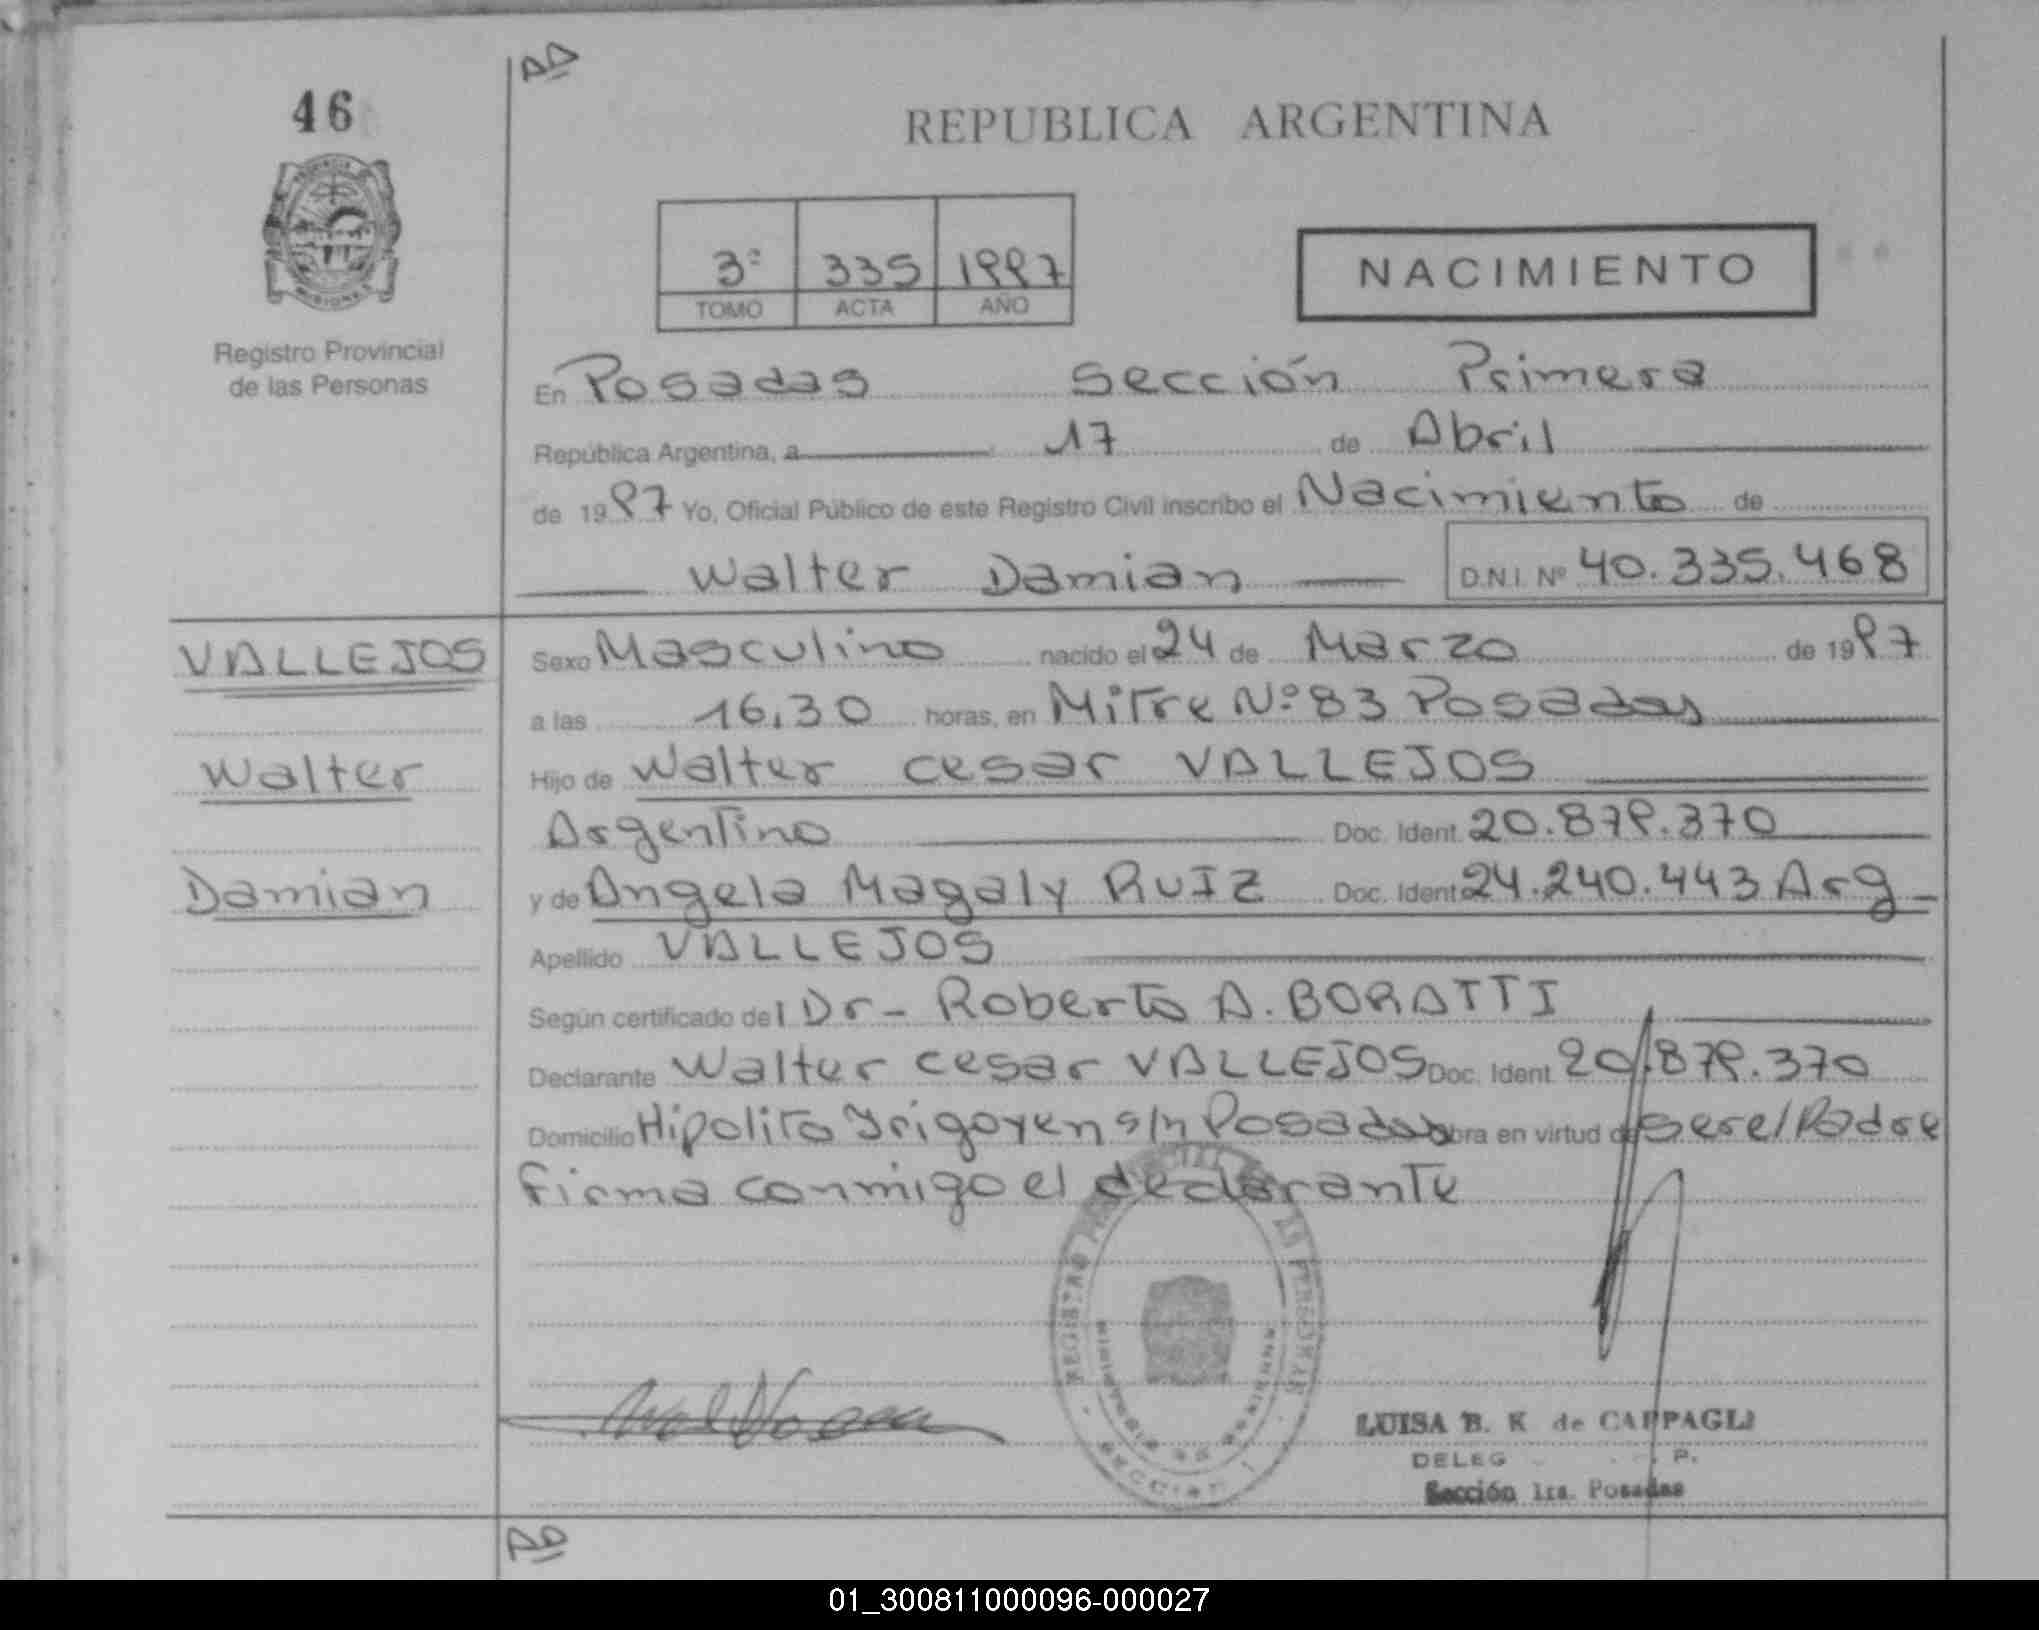 46
REPUBLICA ARGENTINA
3º 335 1997
TOMO ACTA AÑO
NACIMIENTO
Registro Provincial
de las Personas
En Posadas Sección Primera
República Argentina, a 17 de Abril
de 1997 Yo, Oficial Público de este Registro Civil inscribo el Nacimiento de
Walter Damian D.N.I. Nº 40.335.468
VALLEJOS
Walter
Damian
Sexo Masculino nacido el 24 de Marzo de 1997
a las 16,30 horas, en Mitre Nº 83 Posadas
Hijo de Walter Cesar VALLEJOS
Argentino Doc. Ident. 20.879.370
y de Angela Magaly RUIZ Doc. Ident 24.240.443 Arg
Apellido VALLEJOS
Según certificado del Dr- Roberto A. BORATTI
Declarante Walter Cesar VALLEJOS Doc. Ident. 20.879.370
Domicilio Hipolito Yrigoyen s/n Posadas obra en virtud de ser el Padre
Firma conmigo el declarante
LUISA B. K de CAPPAGLI
DELEG P.
Sección 1ra. Posadas
01_300811000096-000027